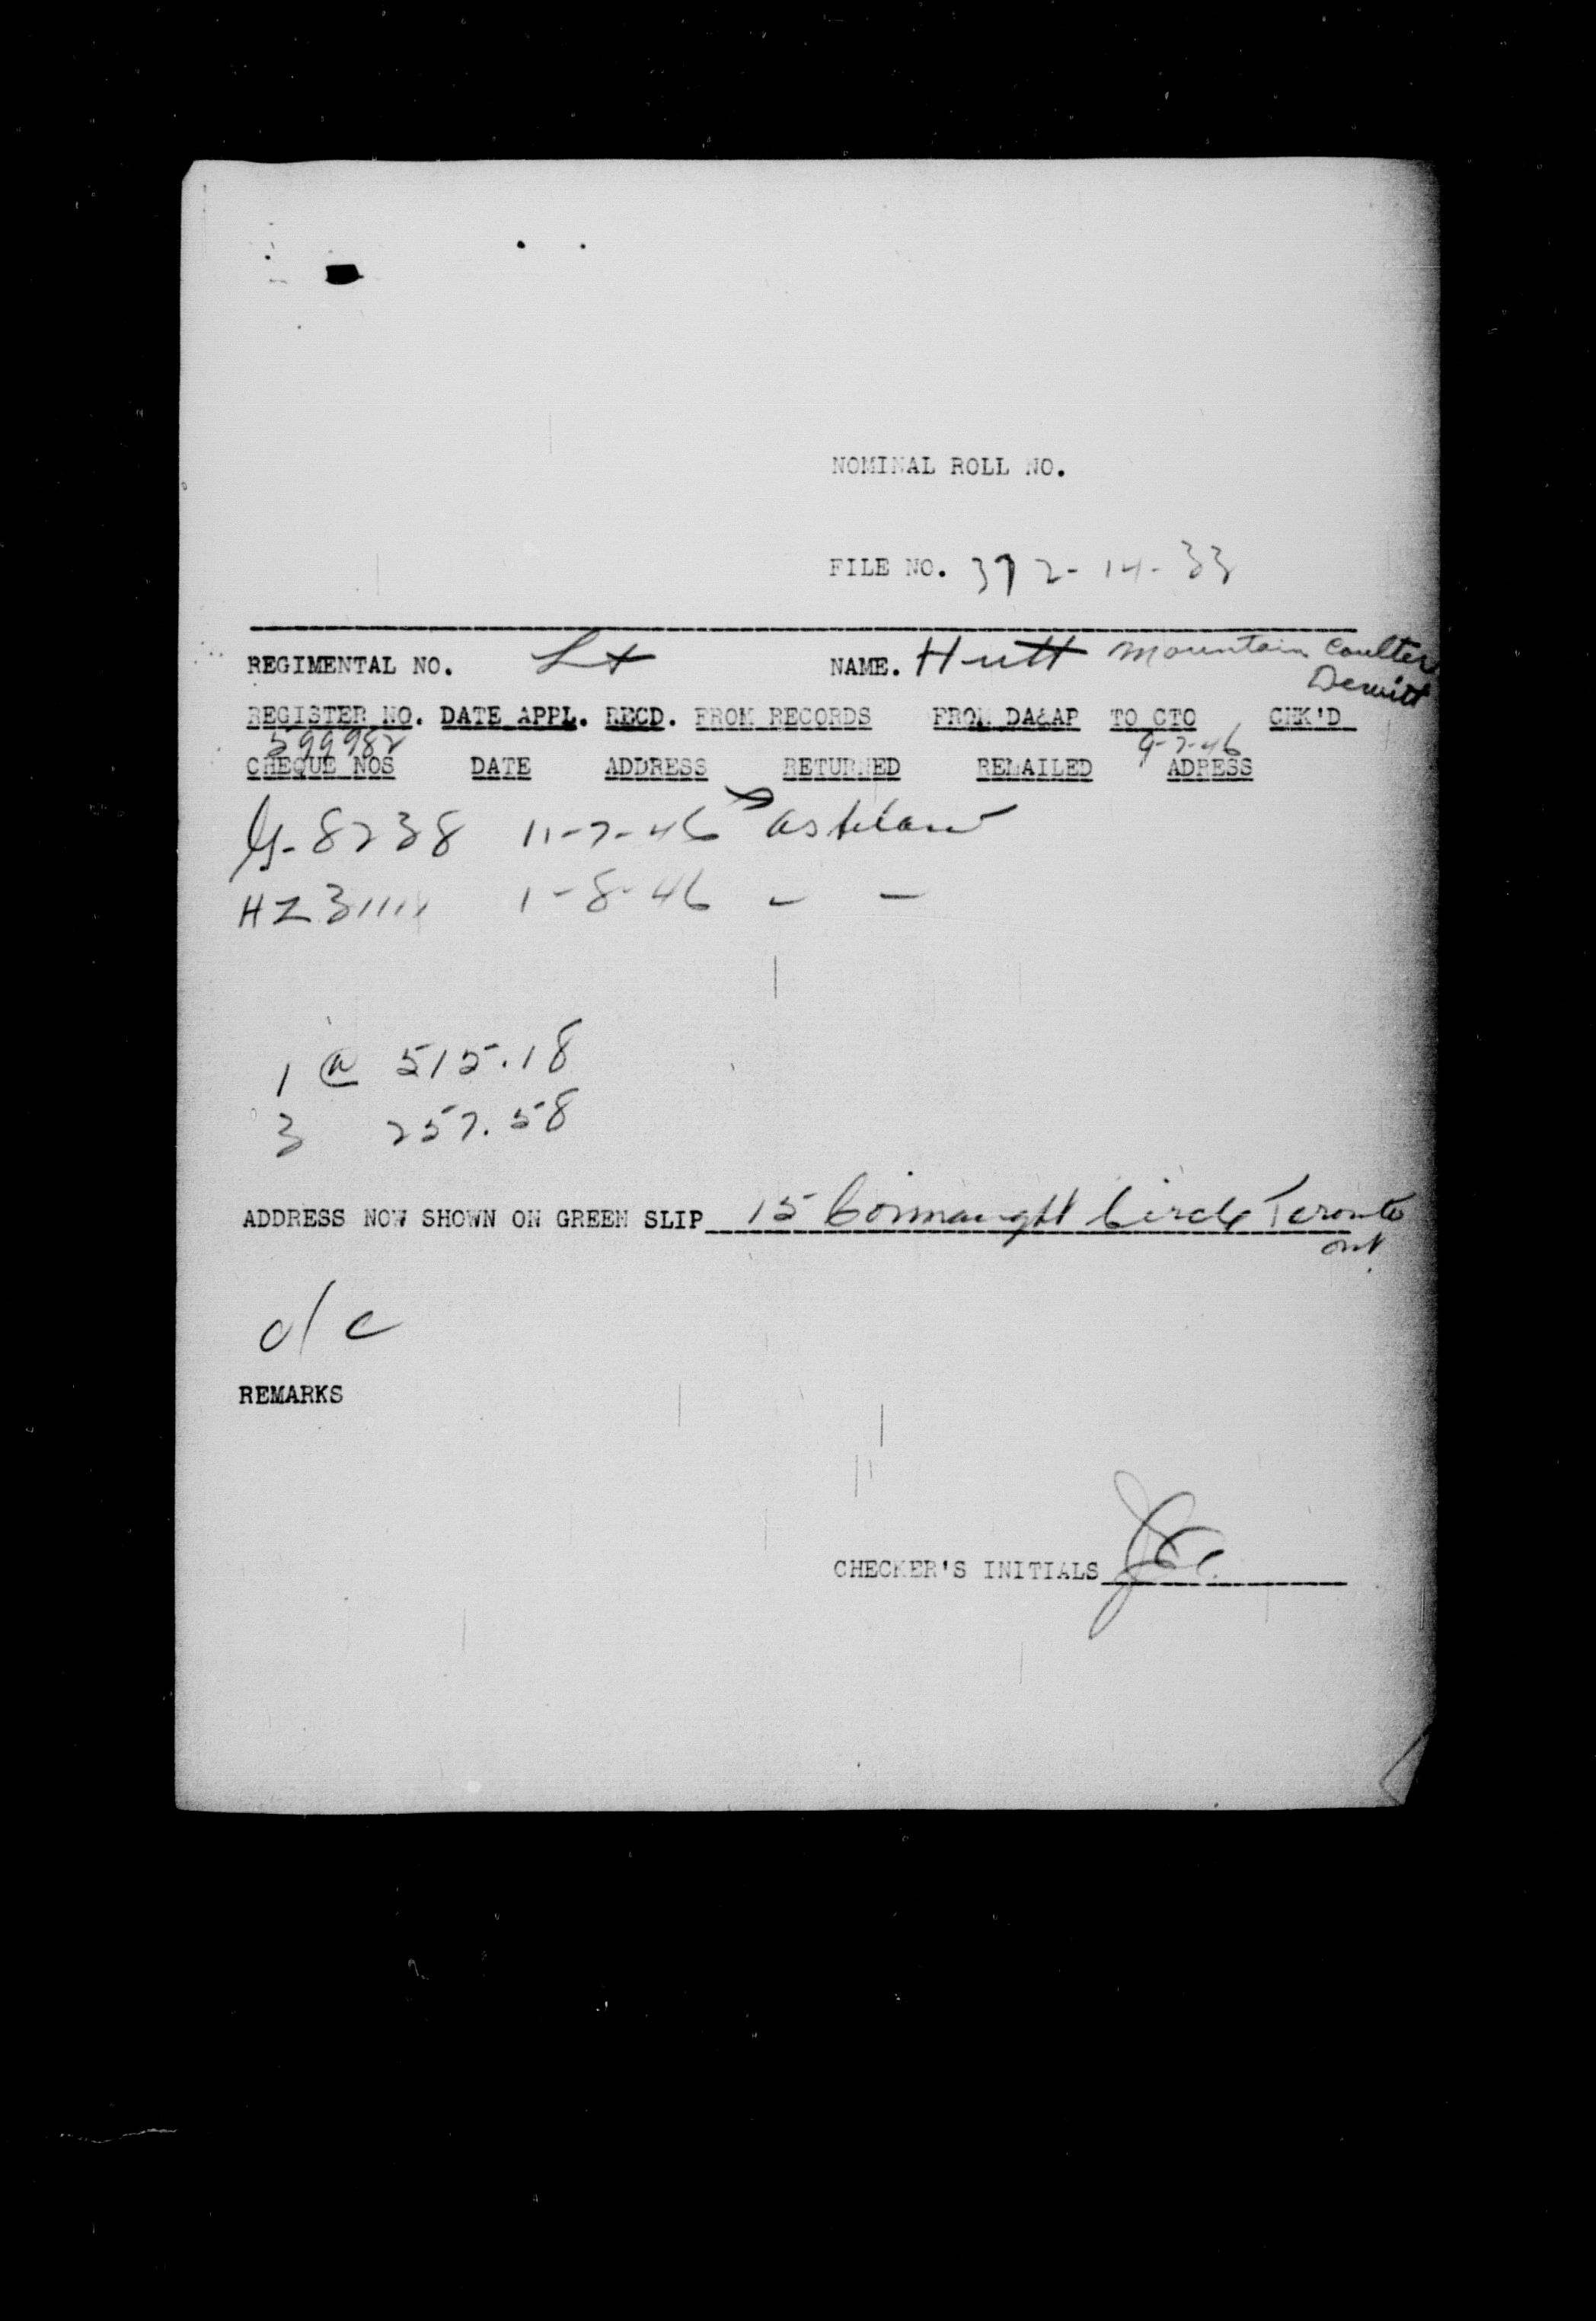 NOMINAL ROLL NO.
FILE NO. 372-14-33
REGIMENTAL NO. Lt NAME. Hutt Mountain Coulter
Dewitt
REGISTER NO. DATE APPL. RECD. FROM RECORDS FROM DA&AP TO CTO CHK'D
599982 9-7-46
CHEQUE NOS DATE ADDRESS RETURNED REMAILED ADRESS
8238 11-7-46 as below
HZ31111 1-8-46 - -
1 @ 515.18
3 257.58
ADDRESS NOW SHOWN ON GREEN SLIP 15 Connaught Circle Toronto
Ont.
REMARKS
CHECKER'S INITIALS